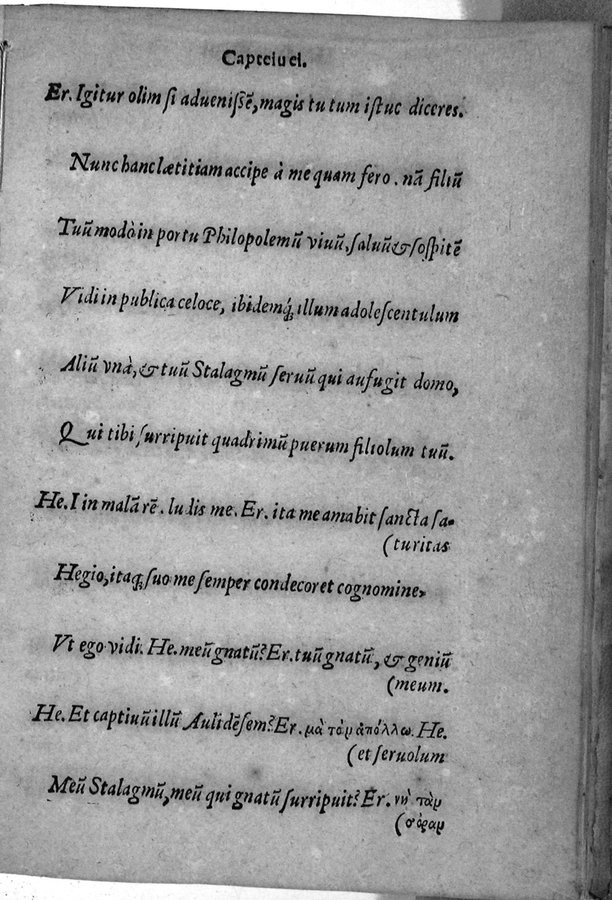 Capteiuei.
Er. Igitur olim si aduenissē, magis tu tum istuc diceres.
Nunc hanc lætitiam accipe à me quam fero. nā filiū
Tuū modò in portu Philopolemū viuū, saluū & sospitē
Vidi in publica celoce, ibidemq́; illum adolescentulum
Aliū vnà, & tuū Stalagmū seruū qui aufugit domo,
Qui tibi surripuit quadrimū puerum filiolum tuū.
He. I in malā rē. ludis me. Er. ita me amabit sancta sa-
(turitas
Hegio, itaq; suo me semper condecoret cognomine,
Vt ego vidi. He. meū gnatū? Er. tuū gnatū, & geniū
(meum.
He. Et captiuū illū Aulidēsem? Er. μὰ τὸμ ἀπόλλω. He.
(et seruolum
Meū Stalagmū, meū qui gnatū surripuit? Er. νὴ τὰμ
(σόραμ